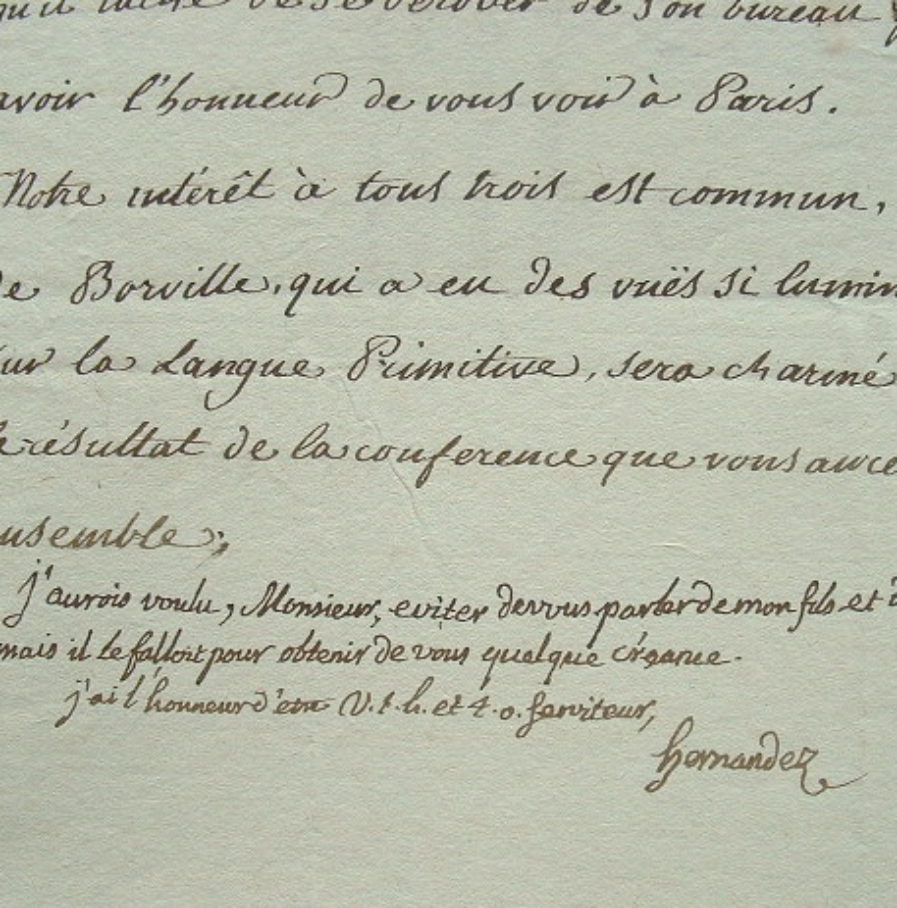 qu'il tache de se dérober de son bureau
avoir l'honneur de vous voir à Paris.
Notre intérêt à tous trois est commun,
de Borville, qui a eu des vuës si lumin
sur la Langue Primitive, sera charmé
le résultat de la conference que vous aure
ensemble;
j'aurois voulu, Monsieur, eviter de vous parler de mon fils et
mais il le falloit pour obtenir de vous quelque créance.
j'ai l'honneur d'etre V. t. h. et t. o. serviteur,
hernandez